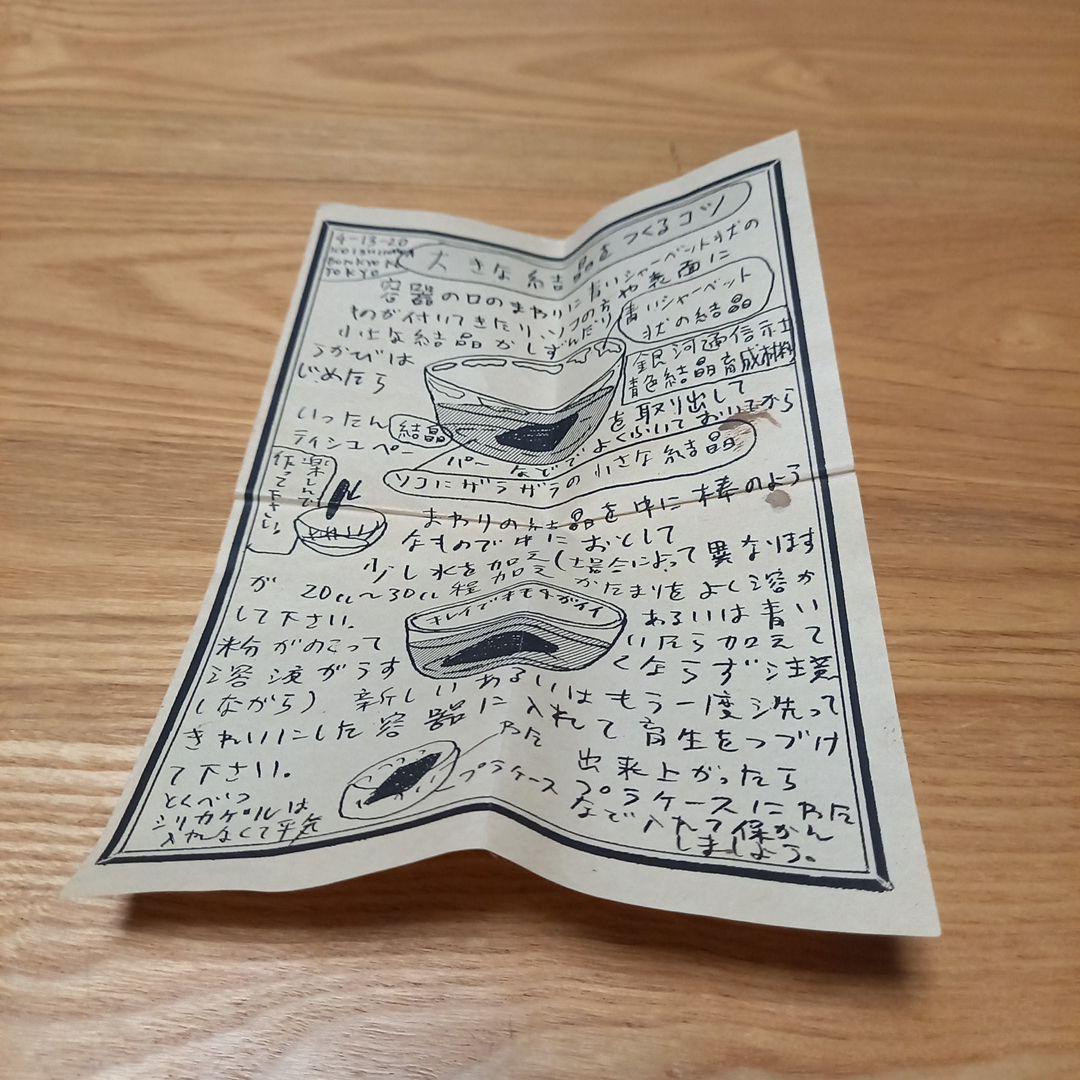 4-13-20
KOISHIKAWA
BUNKYO KU
TOKYO
大きな結晶をつくるコツ
容器の口のまわりに青いシャーベット状の
ものが付いてきたり、ソコの方や表面に
小さな結晶がしずんだり
うかびは
じめたら
青いシャーベット
状の結晶
銀河通信社
青色結晶育成材
いったん 結晶 を取り出して
ティシュペーパーなどでよくふいておいてから
ソコにザラザラの小さな結晶
楽しんで
作って下さい!
まわりの結晶を中に棒のよう
なもので中におとして
少し水を加え(場合によって異なります
が 20cc〜30cc程加え かたまりをよく溶か
して下さい。 あるいは青い
キレイでキモチがイイ
粉がのこって いたら加えて
溶液がうす くならず注意
しながら) 新しいあるいはもう一度洗って
きれいにした容器に入れて育生をつづけ
て下さい。
わた
プラケース
出来上がったら
プラケースにわた
など入れて保かん
しましょう。
とくべつ
シリカゲルは
入れなくて平気